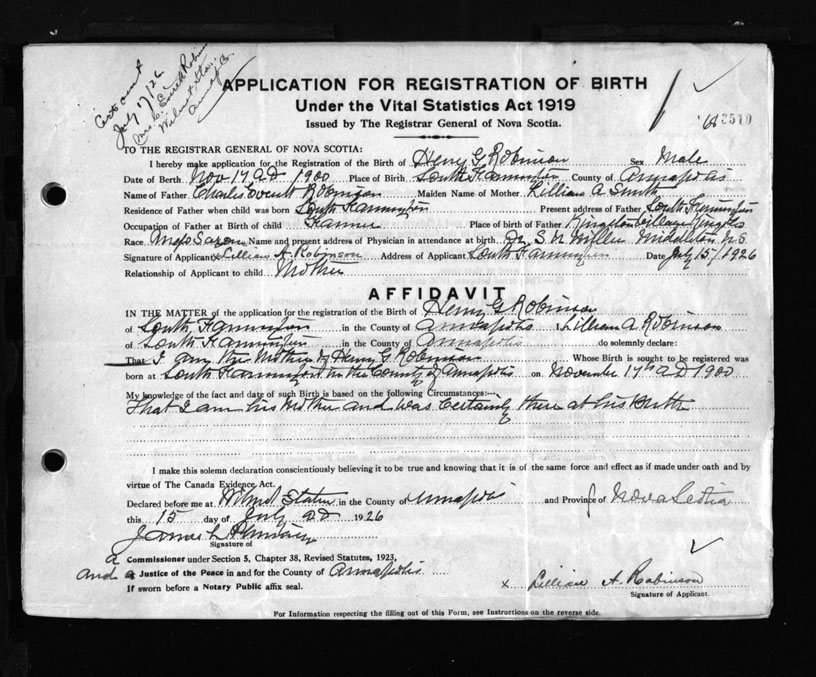 Certs ant
July 17/26
Mrs C. Everett Robinson
Wilmot Sta.
APPLICATION FOR REGISTRATION OF BIRTH
Under the Vital Statistics Act 1919
Issued by The Registrar General of Nova Scotia.
3510
TO THE REGISTRAR GENERAL OF NOVA SCOTIA:
I hereby make application for the Registration of the Birth of Henry G Robinson Sex Male
Date of Berth Nov 17 AD 1900 Place of Birth South Farmington County of Annapolis
Name of Father Charles Everett Robinson Maiden Name of Mother Lillian A Smith
Residence of Father when child was born South Farmington Present address of Father South Farmington
Occupation of Father at Birth of Child Farmer Place of birth of Father Kingston Village Kings Co
Race Anglo Saxon Name and present address of Physician in attendance at birth Dr S. N Miller Middleton N.S.
Signature of Applicant x Lillian A. Robinson Address of Applicant South Farmington Date July 15/1926
Relationship of Applicant to child Mother
AFFIDAVIT
IN THE MATTER of the application for the registration of the Birth of Henry G Robinson
of South Farmington in the County of Annapolis I Lillian A Robinson
of South Farmington in the County of Annapolis do solemnly declare:
That I am the Mother of Henry G Robinson Whose Birth is sought to be registered was
born at South Farmington in the County of Annapolis on November 17th AD 1900
My knowledge of the fact and date of such Birth is based on the following Circumstances:—
That I am his Mother and was certainly there at his Birth
I make this solemn declaration conscientiously believing it to be true and knowing that it is of the same force and effect as if made under oath and by
virtue of The Canada Evidence Act.
Declared before me at Wilmot Station in the County of Annapolis and Province of Nova Scotia
this 15 day of July AD 1926
James L
Signature of
a Commissioner under Section 5, Chapter 38, Revised Statutes, 1923,
and a Justice of the Peace in and for the County of Annapolis
If sworn before a Notary Public affix seal.
x Lillian A. Robinson
Signature of Applicant.
For Information respecting the filling out of this Form, see Instructions on the reverse side.